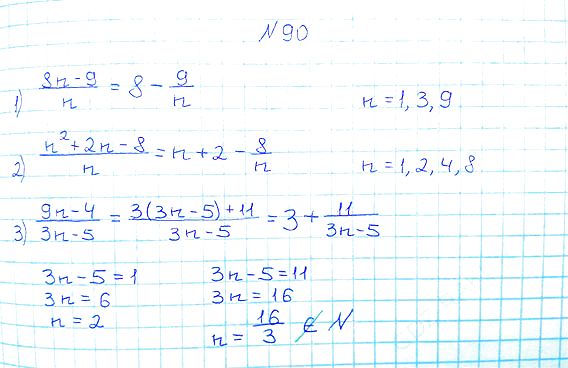 N 90
1) (8n-9)/n = 8 - 9/n    n = 1, 3, 9
2) (n²+2n-8)/n = n + 2 - 8/n    n = 1, 2, 4, 8
3) (9n-4)/(3n-5) = (3(3n-5)+11)/(3n-5) = 3 + 11/(3n-5)
3n-5=1    3n-5=11
3n = 6    3n = 16
n = 2    n = 16/3 ∉ N